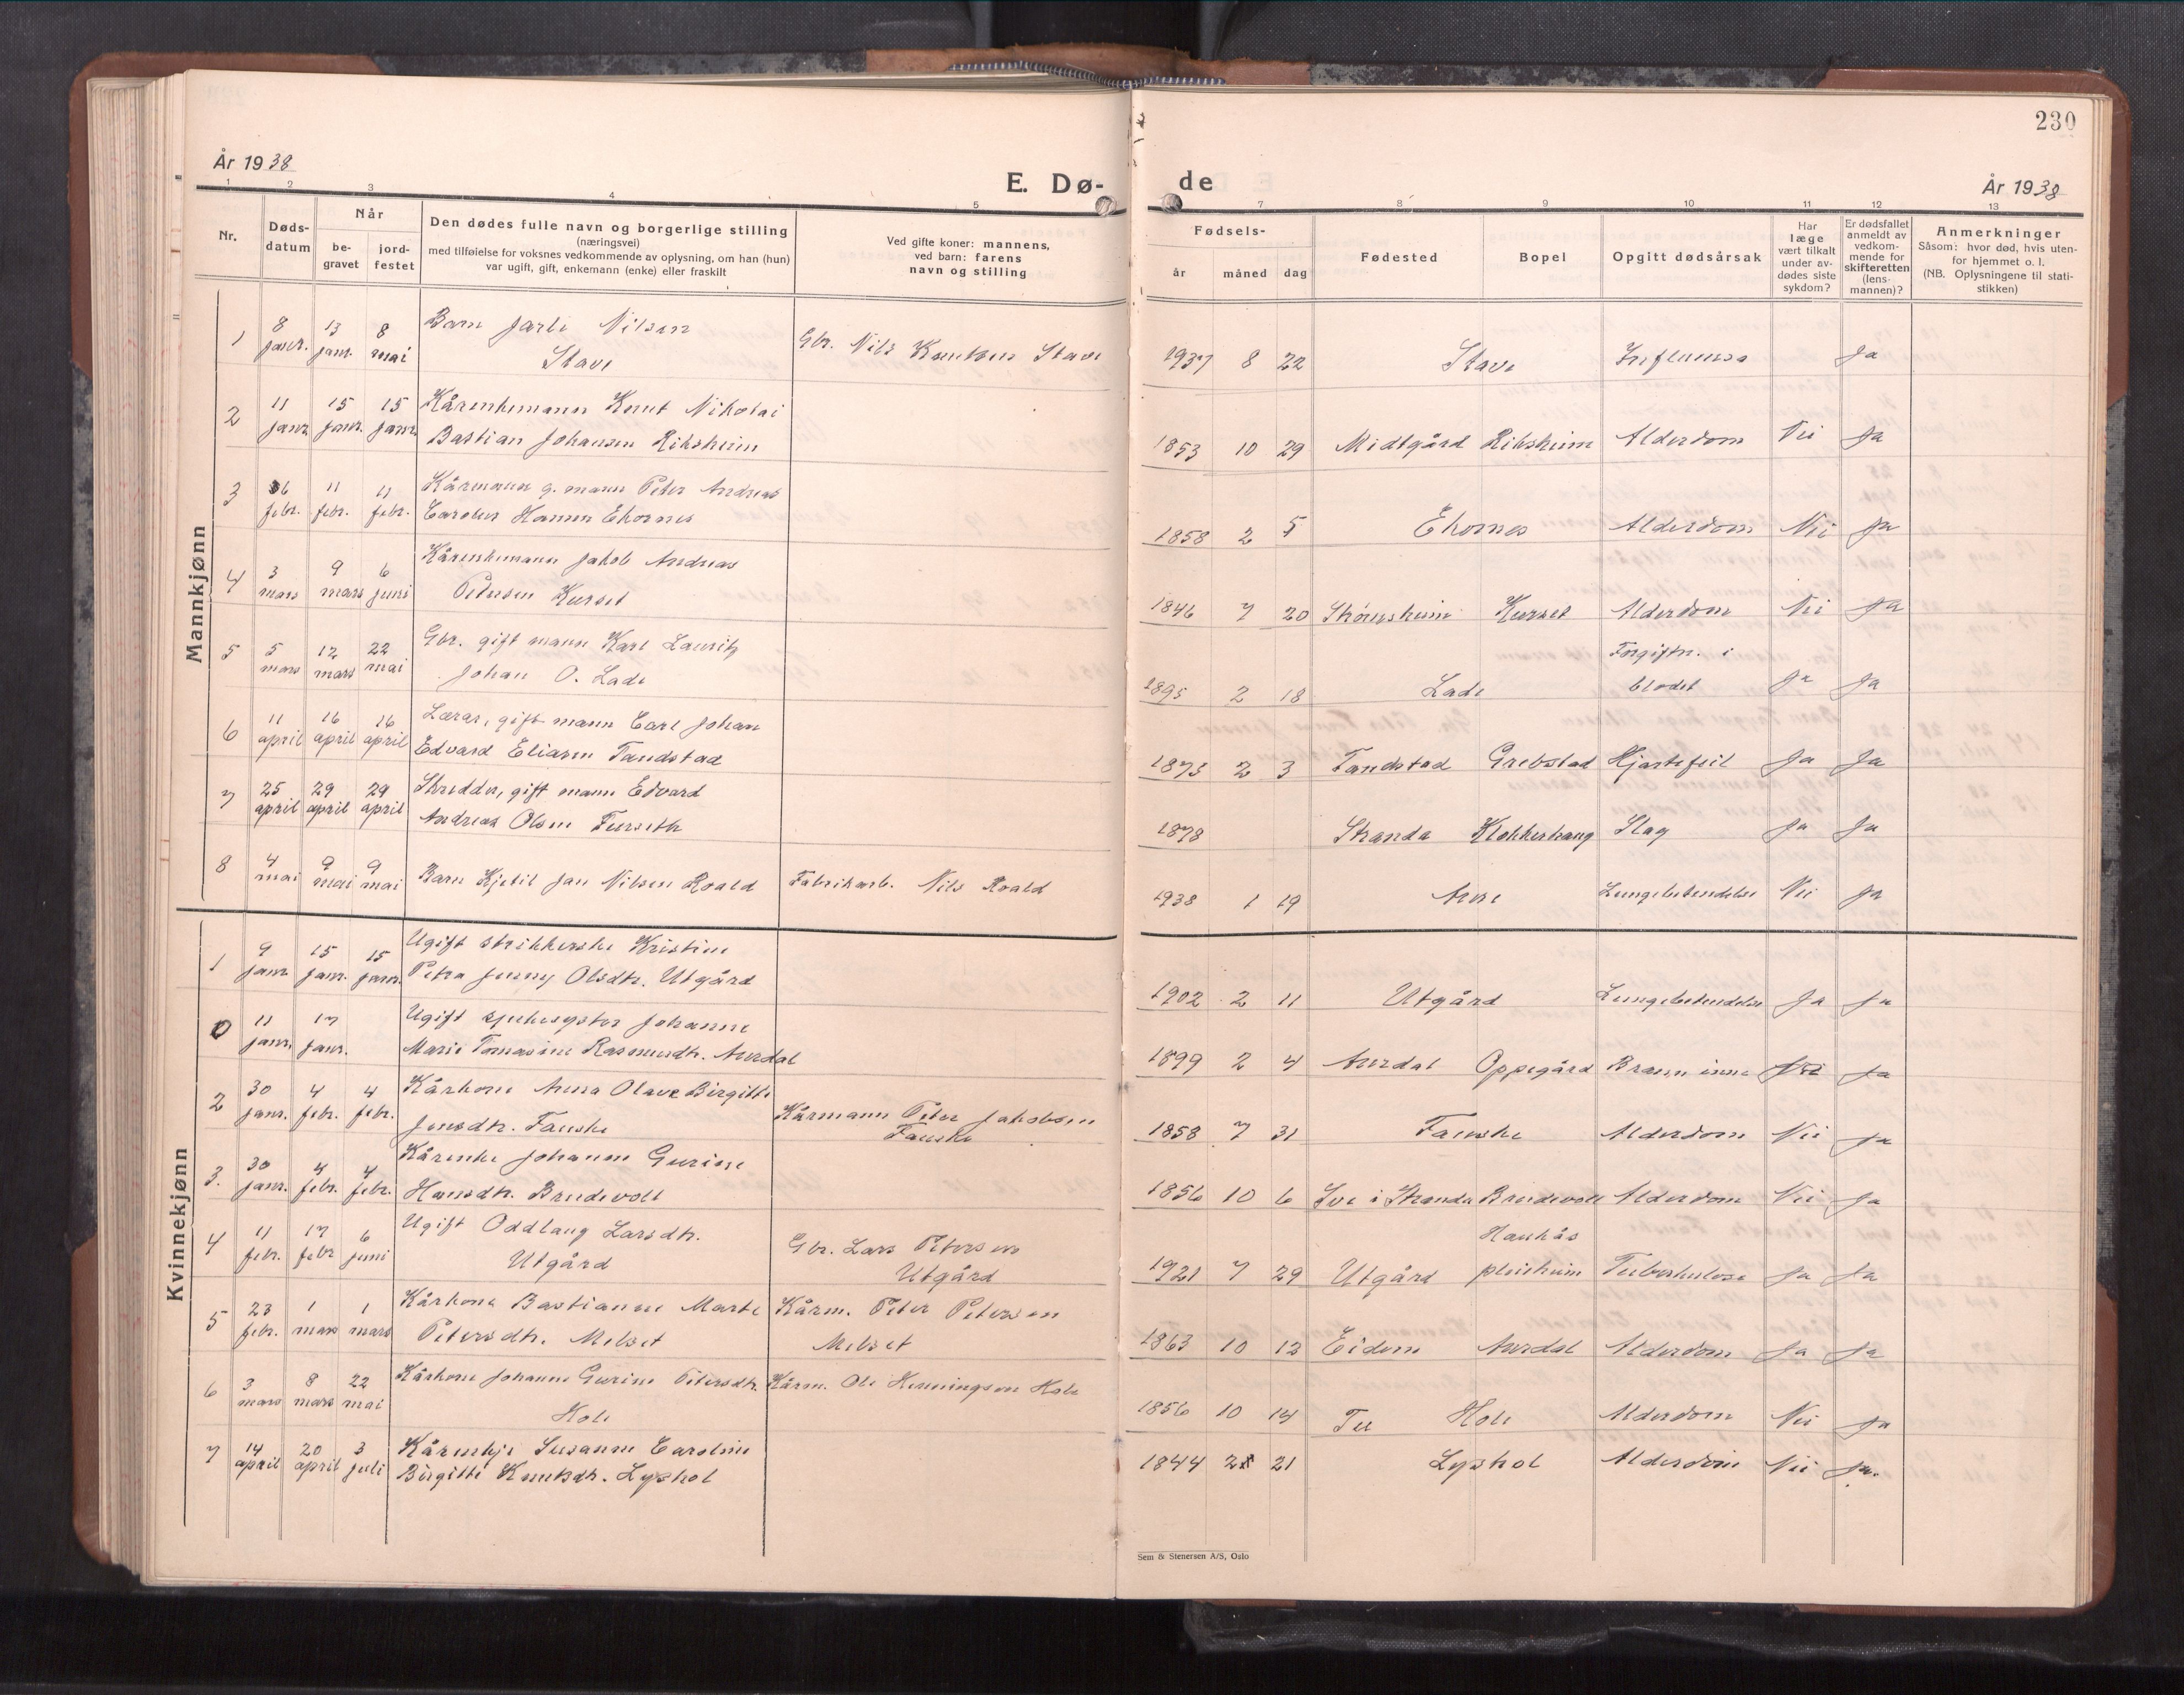 230
År 1938
E. Dø-
de
År 1938
1 2 3 4 5
7 8 9 10 11 12 13
Nr.
Døds-
datum
Når
be-
gravet
jord-
festet
Den dødes fulle navn og borgerlige stilling
(næringsvei)
med tilføielse for voksnes vedkommende av oplysning, om han (hun)
var ugift, gift, enkemann (enke) eller fraskilt
Ved gifte koner: mannens,
ved barn: farens
navn og stilling
Fødsels-
år måned dag
Fødested
Bopel
Opgitt dødsårsak
Har
læge
vært tilkalt
under av-
dødes siste
sykdom?
Er dødsfallet
anmeldt av
vedkom-
mende for
skifteretten
(lens-
mannen)?
Anmerkninger
Såsom: hvor død, hvis uten-
for hjemmet o. l.
(NB. Oplysningene til stati-
stikken)
Mannkjønn
1 8 janr. 13 janr. 8 mai Barn Jarle Nilsen
Stave
Gbr. Nils Knutsen Stave
1937 8 22 Stave Influensa Ja
2 11 janr. 15 janr. 15 janr. Kårenkemann Knut Nikolai
Bastian Johansen Riksheim
1853 10 29 Midtgård Riksheim Alderdom Nei Ja
3 6 febr. 11 febr. 11 febr. Kårmann g. mann Peter Andreas
Carolus Hansen Ekornes
1858 2 5 Ekornes Alderdom Nei Ja
4 3 mars 9 mars 6 juni Kårenkemann Jakob Andreas
Petersen Kurset
1846 7 20 Strømsheim Kurset Alderdom Nei Ja
5 5 mars 12 mars 22 mai Gbr. gift mann Karl Lauritz
Johan O. Lade
1895 2 18 Lade Forgiftn. i
blodet Ja Ja
6 11 april 16 april 16 april Lærar, gift mann Carl Johan
Edvard Eliasen Tandstad
1873 2 3 Tandstad Grebstad Hjartefeil Ja Ja
7 25 april 29 april 29 april Skredder, gift mann Edvard
Andreas Olsen Furseth
1878 Stranda Klokkerhaug Slag Ja Ja
8 4 mai 9 mai 9 mai Barn Kjetil Jan Nilsen Roald
Fabrikarb. Nils Roald
1938 1 19 Aure Lungebetendelse Nei Ja
Kvinnekjønn
1 9 janr 15 janr. 15 janr. Ugift strikkerske Kristine
Petra Jenny Olsdtr. Utgård
1902 2 11 Utgård Lungebetendelse Ja Ja
0 11 janr. 17 janr. Ugift sjukesyster Johanne
Marie Tomasine Rasmusdtr. Aurdal
1899 2 4 Aurdal Oppegård Brann inne Nei Ja
2 30 janr. 4 febr. 4 febr. Kårkone Anna Olave Birgitte
Jensdtr. Fauske
Kårmann Peter Jakobsen
Fauske
1858 7 31 Fauske Alderdom Nei Ja
3. 30 janr. 4 febr. 4 febr. Kårenke Johanne Gurine
Hansdtr. Brudevoll
1856 10 6 Sve i Stranda Brudevoll Alderdom Nei Ja
4 11 febr. 17 febr 6 juni Ugift Oddlaug Larsdtr.
Utgård
Gbr. Lars Petersen
Utgård
1921 7 29 Utgård Haukås
pleieheim Tuberkulose Ja Ja
5 23 febr. 1 mars 1 mars Kårkone Bastianne Marte
Petersdtr. Melset
Kårm. Peter Petersen
Melset
1863 10 12 Eidem Aurdal Alderdom Ja Ja
6 3 mars 8 mars 22 mai Kårkone Johanne Gurine Petersdtr.
Hole
Kårm. Ole Henningsen Hole
1856 10 14 Tu Hole Alderdom Nei Ja
7 14 april 20 april 3 juli Kårenkje Susanne Caroline
Birgitte Knutsdtr. Lyshol
1844 2 21 Lyshol Alderdom Nei Ja.
Sem & Stenersen A/S, Oslo